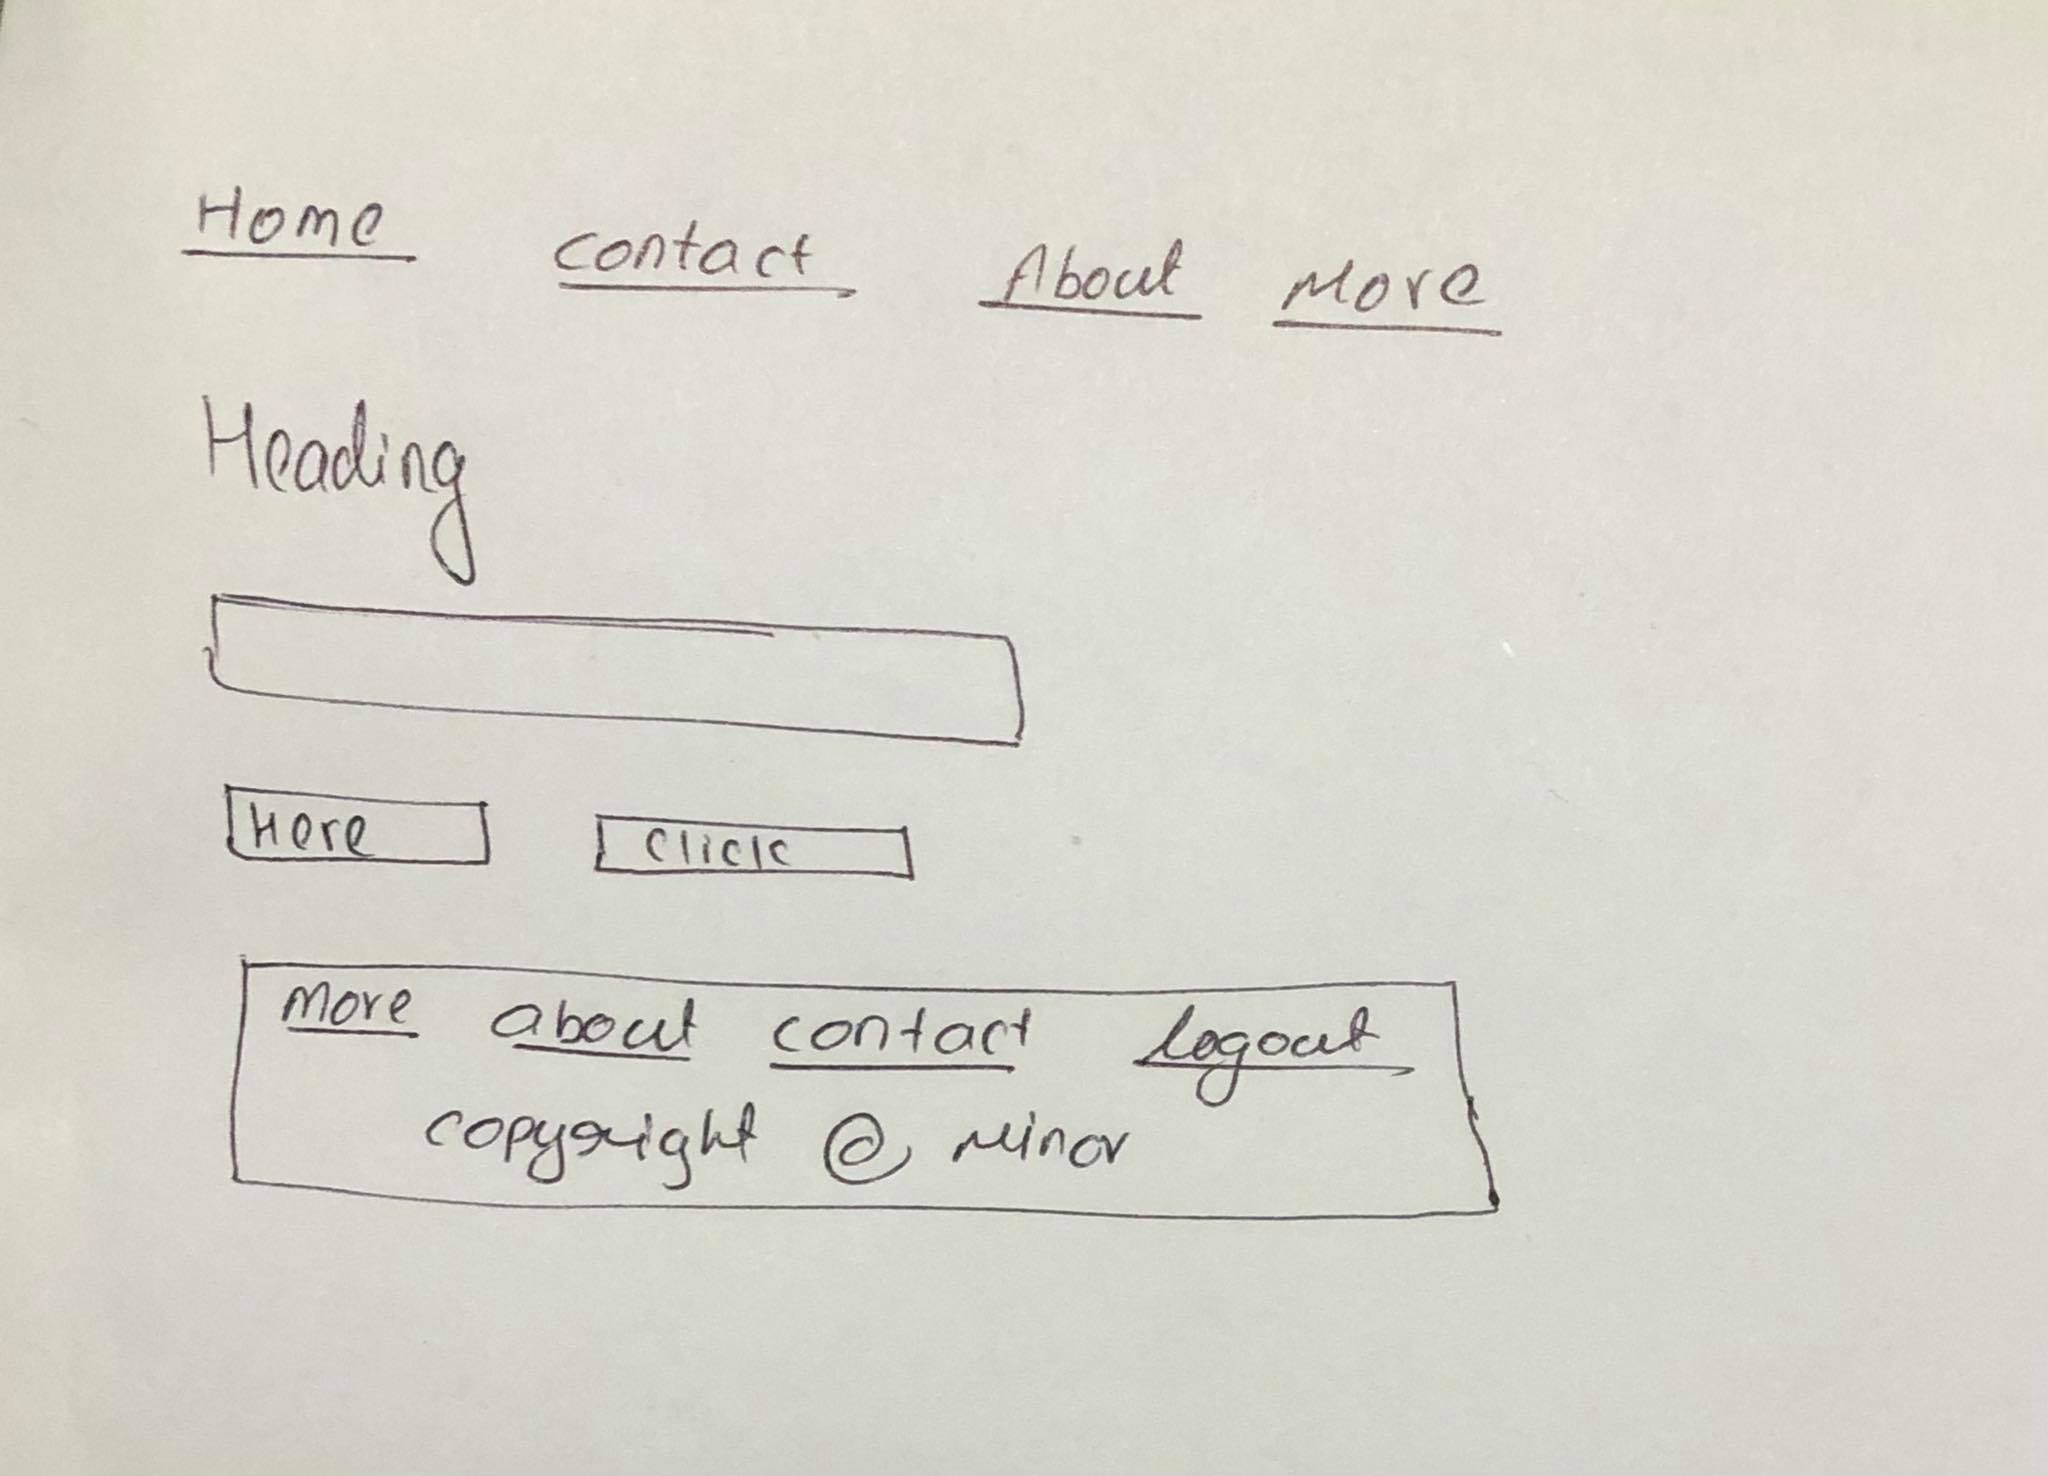 Home contact About More
Heading
Here click
more about contact logout
copyright @ Minor